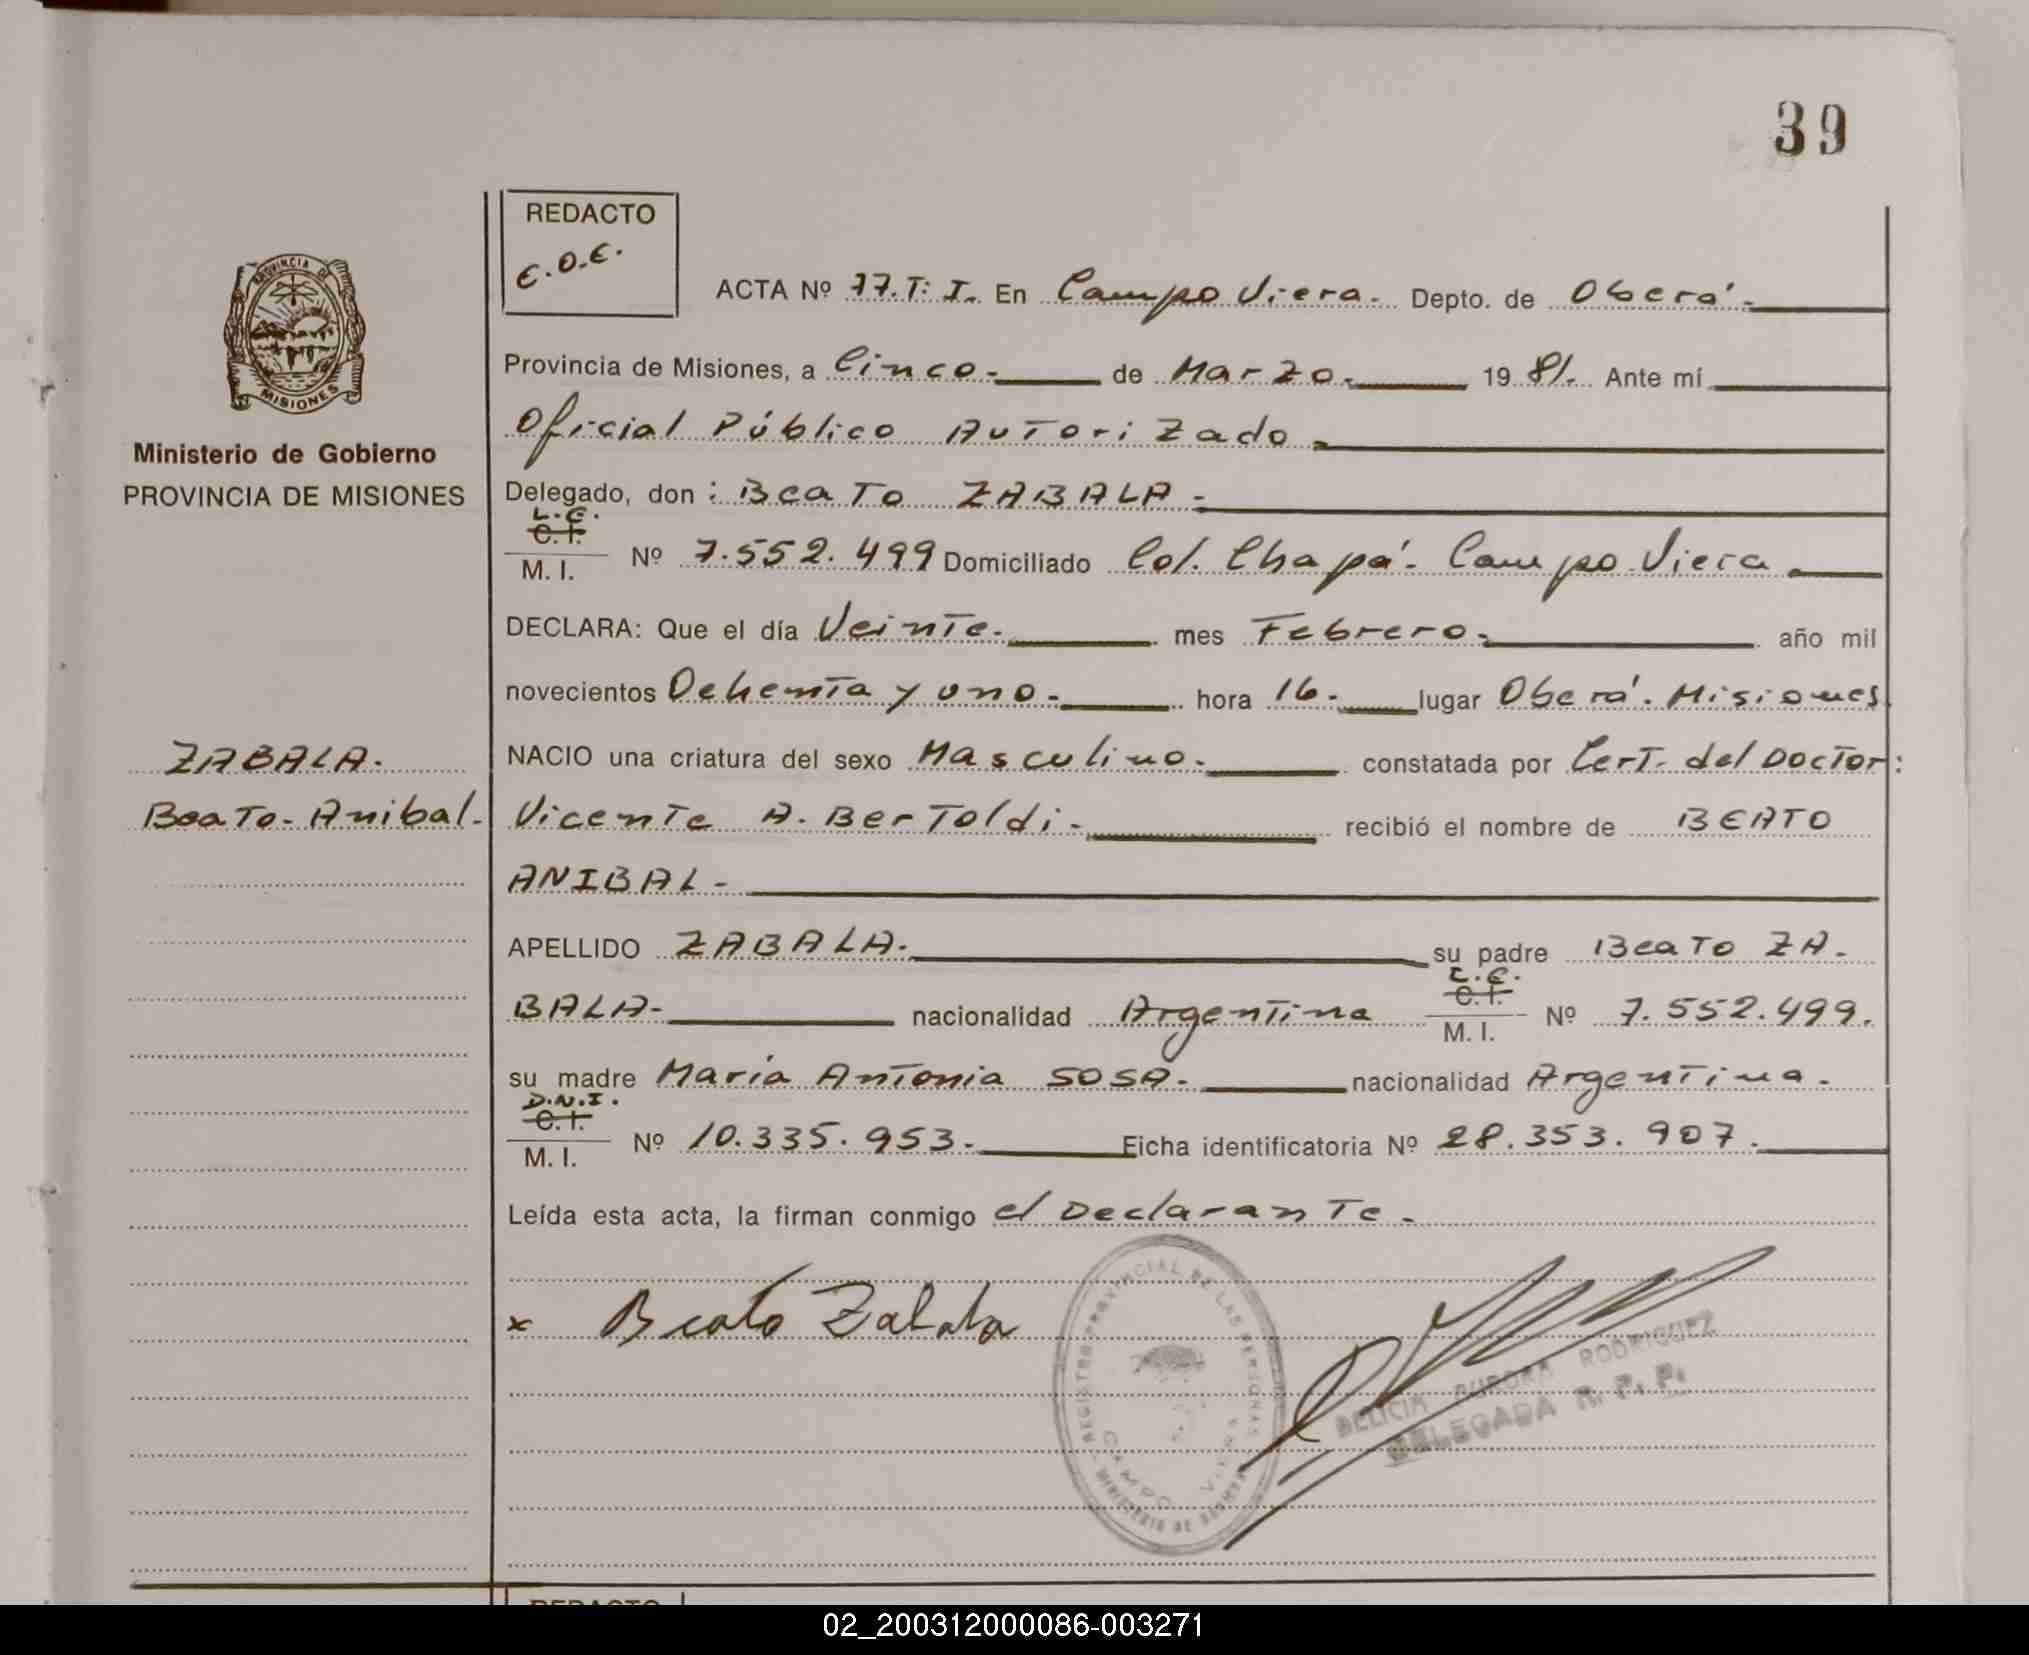 39
REDACTO
E.O.E.
ACTA Nº 77.T: I. En Campo Viera.- Depto. de Oberá.-
Provincia de Misiones, a Cinco.- de Marzo.- 1981.- Ante mí
Oficial Público Autorizado.-
Ministerio de Gobierno
PROVINCIA DE MISIONES
PROVINCIA DE
MISIONES
Delegado, don: Beato ZABALA.-
L.E.
C.I.
M. I. Nº 7.552.499 Domiciliado Col. Chapá.- Campo Viera.-
DECLARA: Que el día Veinte.- mes Febrero.- año mil
novecientos Ochenta y uno.- hora 16.- lugar Oberá.- Misiones
ZABALA.-
Beato-Anibal.-
NACIO una criatura del sexo Masculino.- constatada por Cert. del Doctor:
Vicente A. Bertoldi.- recibió el nombre de BEATO
ANIBAL-
APELLIDO ZABALA.- su padre Beato ZA-
BALA- nacionalidad Argentina
L.E.
C.I.
M. I. Nº 7.552.499.
su madre María Antonia SOSA.- nacionalidad Argentina.
D.N.I.
C.I.
M. I. Nº 10.335.953.- Ficha identificatoria Nº 28.353.907.-
Leída esta acta, la firman conmigo el Declarante.-
x Beato Zabala
REGISTRO PROVINCIAL DE LAS PERSONAS
CAMPO VIERA
MINISTERIO DE GOBIERNO
DELICIA AURORA RODRIGUEZ
DELEGADA R. P. P.
REDACTO
02_200312000086-003271